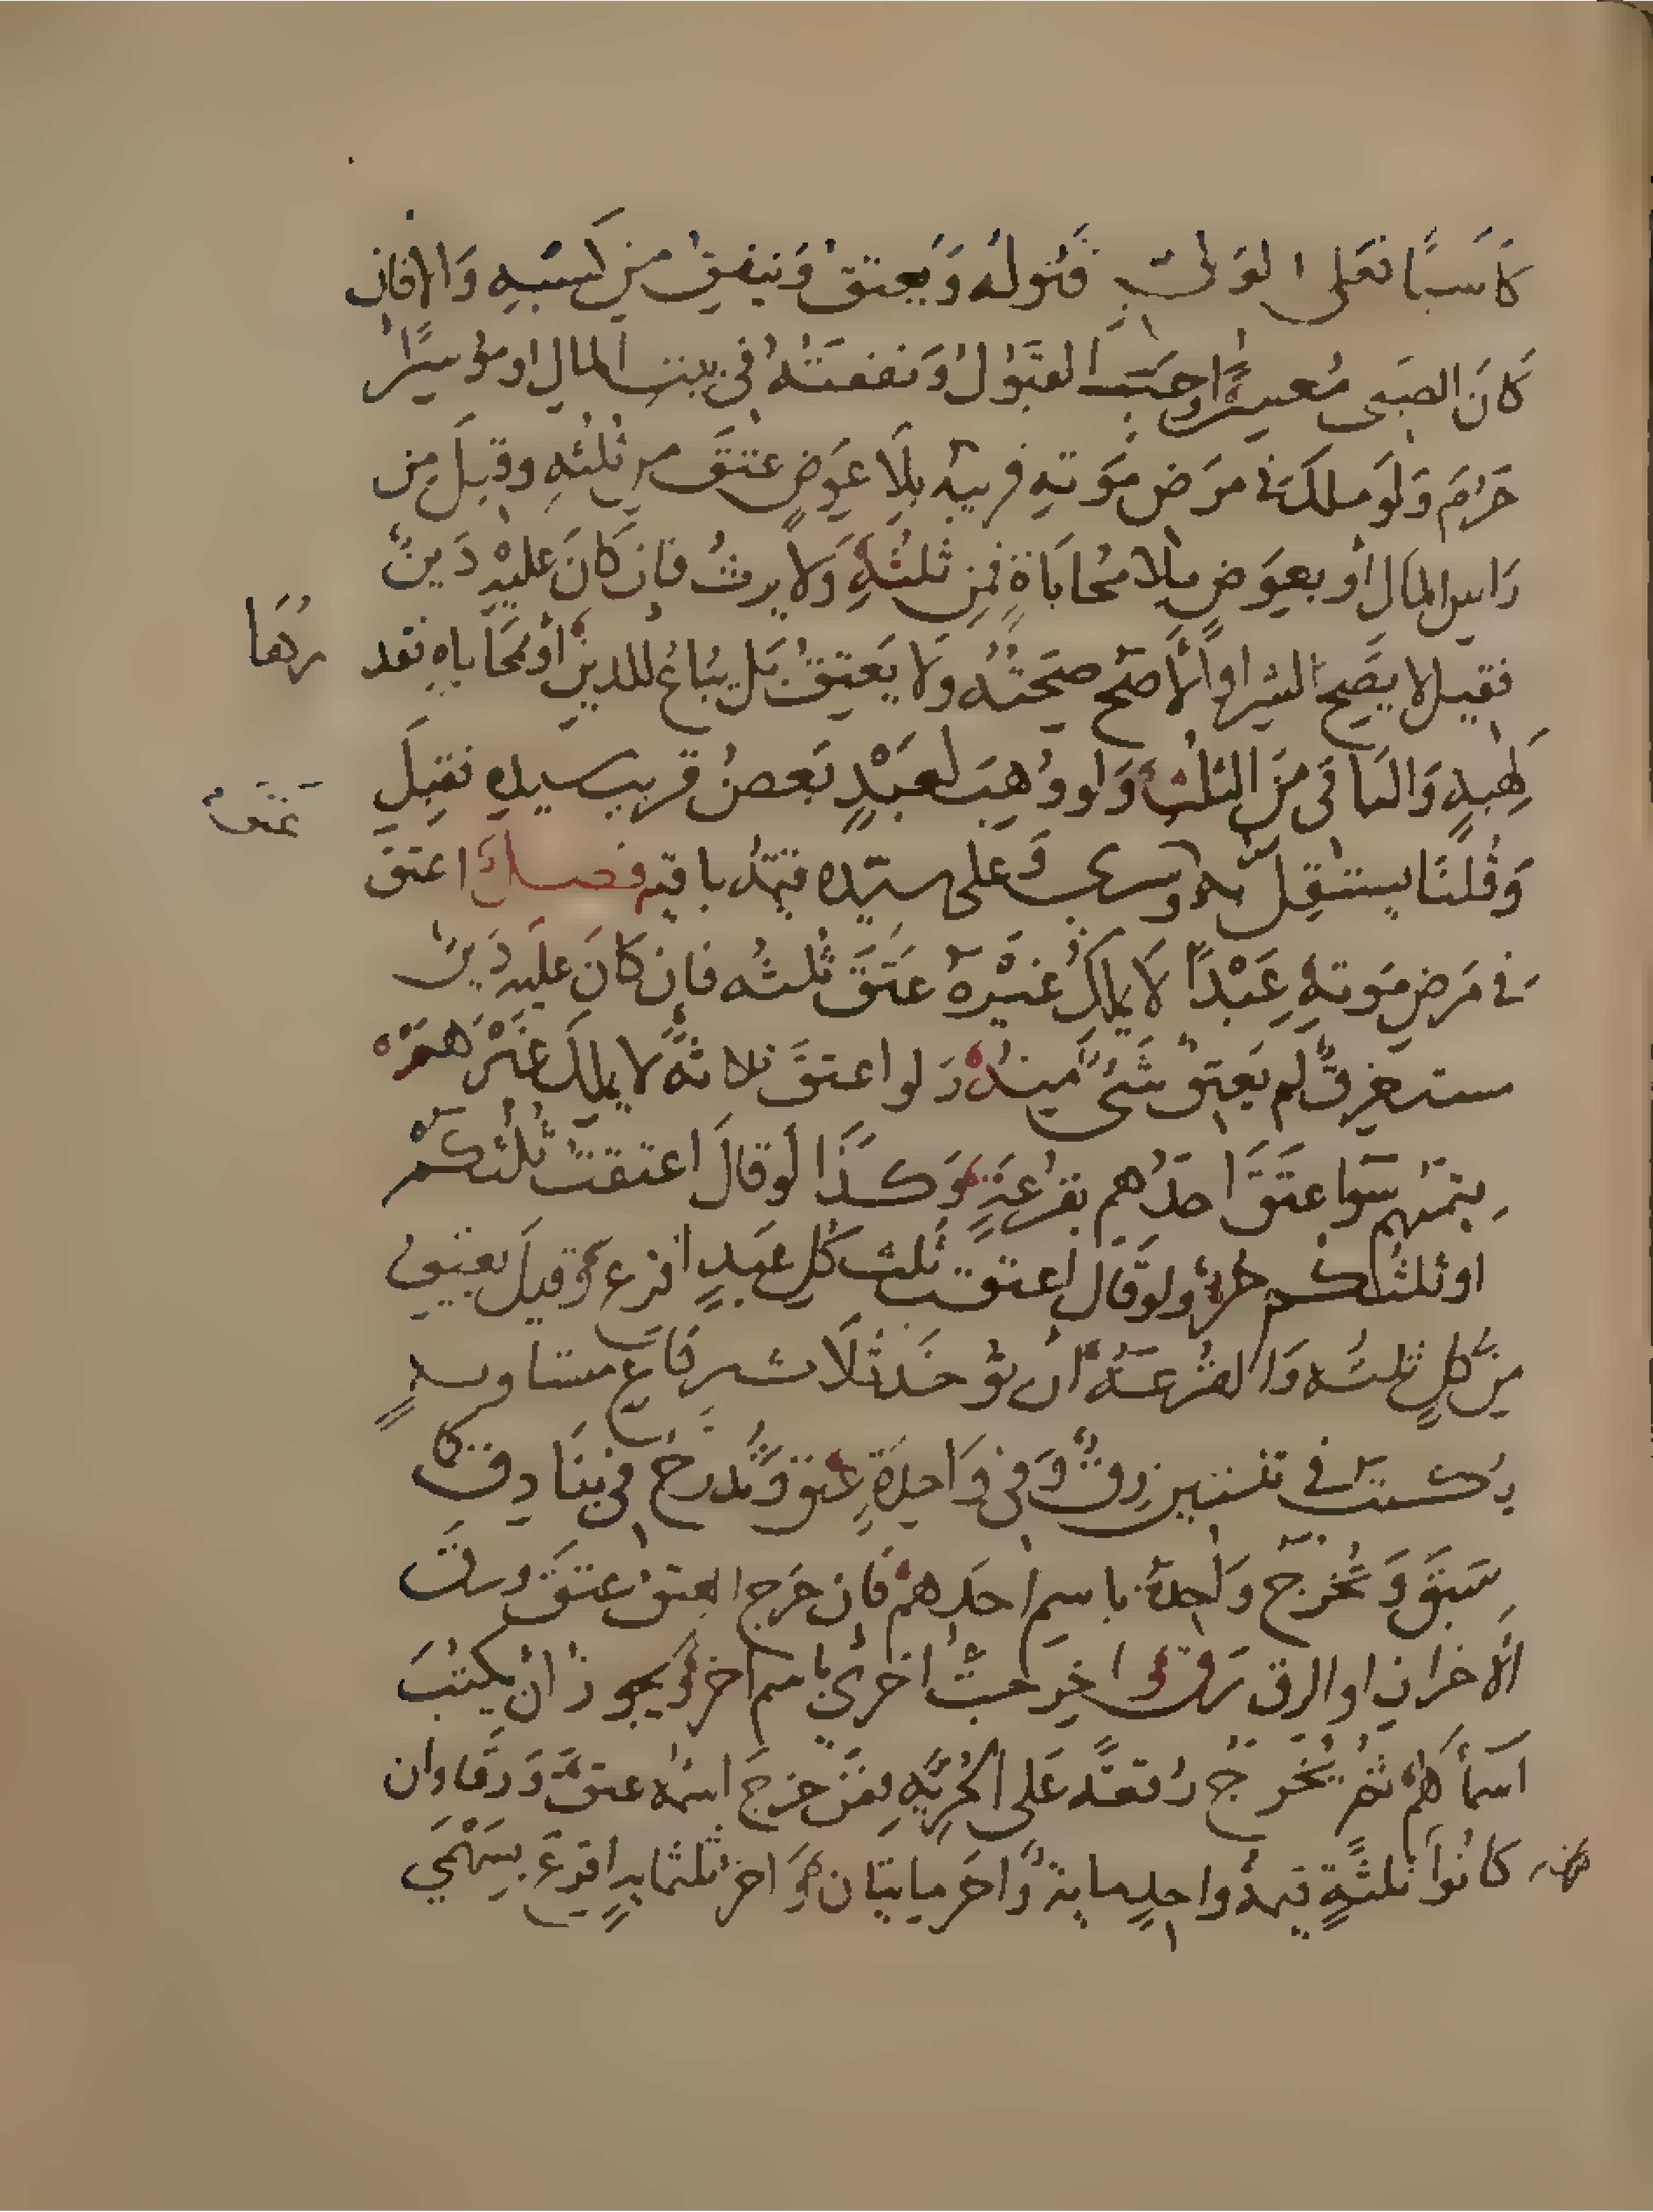 كَاسبًا فعَلى الوَلىّ قَبُولُه وَيعتقُ وَينفِقُ مِن كَسْبِهِ وَالا فان
كَانَ الصَبى مُعسِرًا وَجَبَ القبَوُلُ وَنفقتُهُ فى بيت المال او مُوسِرًا
حَرُمَ وَلوَ ملكَ فى مرَض مَوته قريبَه بلَا عِوَضٍ عتَقَ مِن ثُلثهِ وقيلَ مِن
رَاسِ المَال أو بعِوَضٍ بلا مُحابَاةٍ فمِن ثلثهِ وَلا يرثُ فان كانَ عَليْهِ دَينٌ
فقيل لا يصَِح الشرا وَالأصَح صحَتُهُ وَلا يَعتِقُ بَل يُبَاعُ للدينِ أو بمُحَاباه فقدرُهَا
كهِبهٍ وَالبَاقى مِنَ الثلث وَلو وُهِبَ لعَبْدٍ بَعضُ قريب سيدهِ فقبِلَ
وَقُلنَا يستقِلّ به وسرى وَعلى سيّده قيمَهُ باقيه فصل اعتقَ
فى مَرضِ مَوتهِ عَبْدًا لا يملكُ غَيْرهُ عتَقَ ثُلثُه فان كانَ عليه دَينٌ
مستغرِقٌ لم يَعتِق شَىٌ مِنهُ وَلو اعتقَ ثلاثهً لا يملكَ غَيْرَهمْ
قيمتهُم سَوَا عتَقَ احَدُهم بقُرْعَةٍ وَكَذَا لوقالَ اعتقتُ ثُلثكُمْ
او ثلثُكم حُرٌ ولو قَال اعتقت ثُلث كُل عَبدٍ اقرعَ وقيلَ يعتِقُ
مِن كُلٍ ثلثُه وَالقُرعَةُ ان يُؤخَذ ثَلَاث رقَاع متساويهٍ
يُكتب فى ثنتين رِقٌ وَفى وَاحِدةٍ عتق وَتُدرجُ فى بنَادِق كا
سَبَقَ وَتُخْرَج وَاحِدهٌ باسمِ احَدِهمْ فان خَرج العِتقُ عتَقَ وَرقَ
الآخرَانِ او الرق رَق واخرِجتْ اخرىَ باسم آخرَ وَيجوزُ ان يكتبَ
اسَمَأهُم ثم يخْرَج رُقعَهٌ عَلى الحُريَّهِ فمَن خرَجَ اسْمُه عتقَ وَرَقا وان
كَانُوا ثلثَةٍ قيمهُ واحدٍ مايةٌ وَاخَر مايتَان وَاخرَ ثلثمايهٍ اقرعَ بسَهْمَي
عَتَقَ